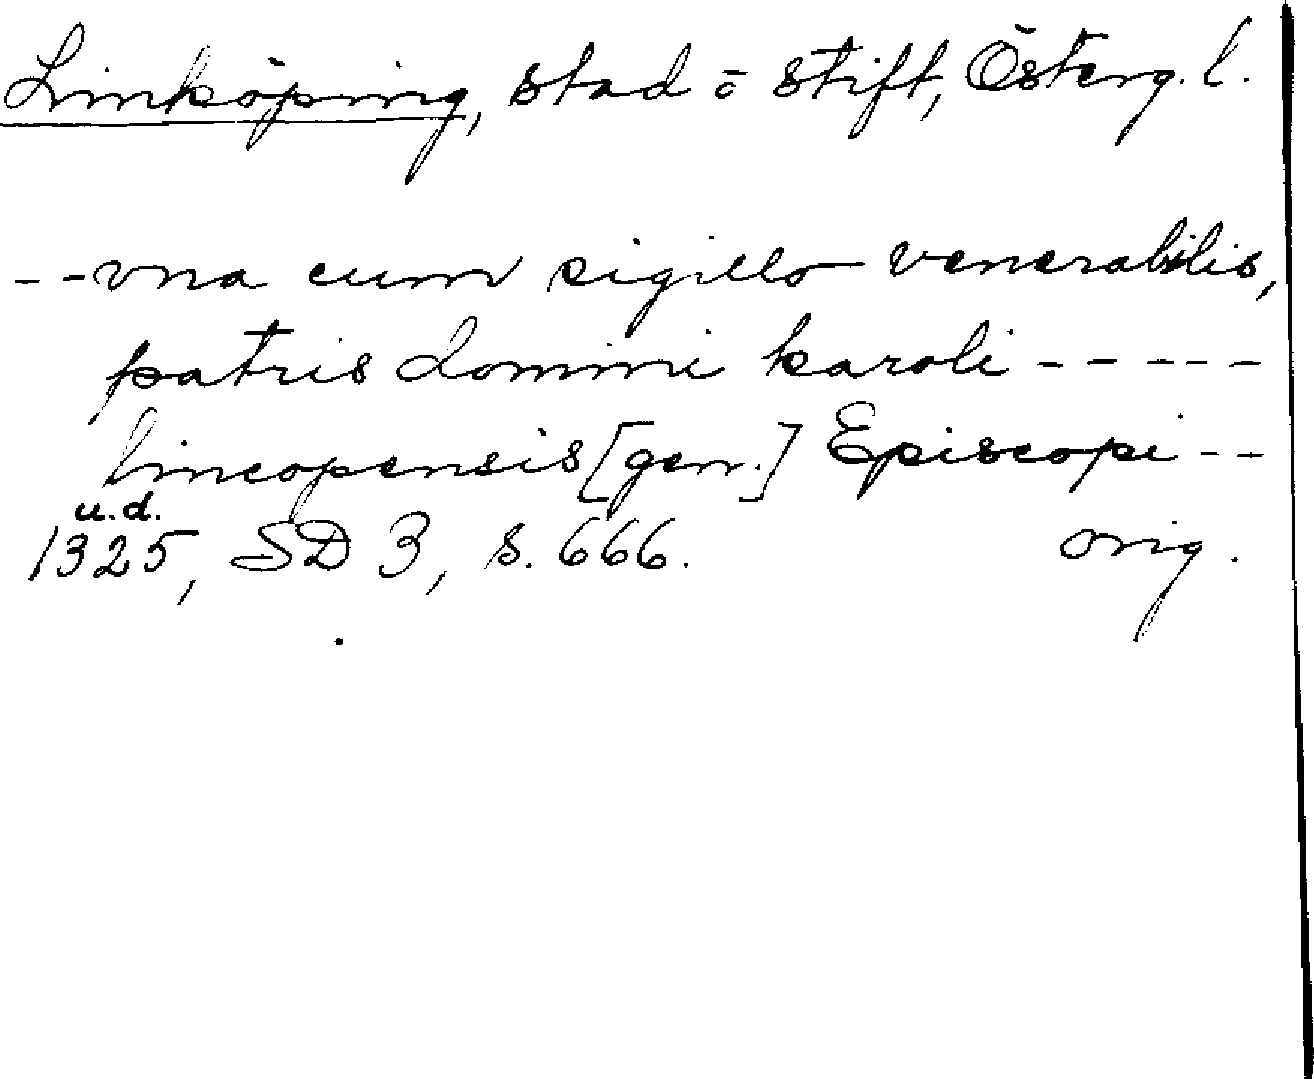 Linköping, stad o stift, Österg. l.
--vna cum sigillo venerabilis,
patris domini karoli -----
lincopensis [gen.] Episcopi --
u.d.
1325, SD 3, s. 666. orig.